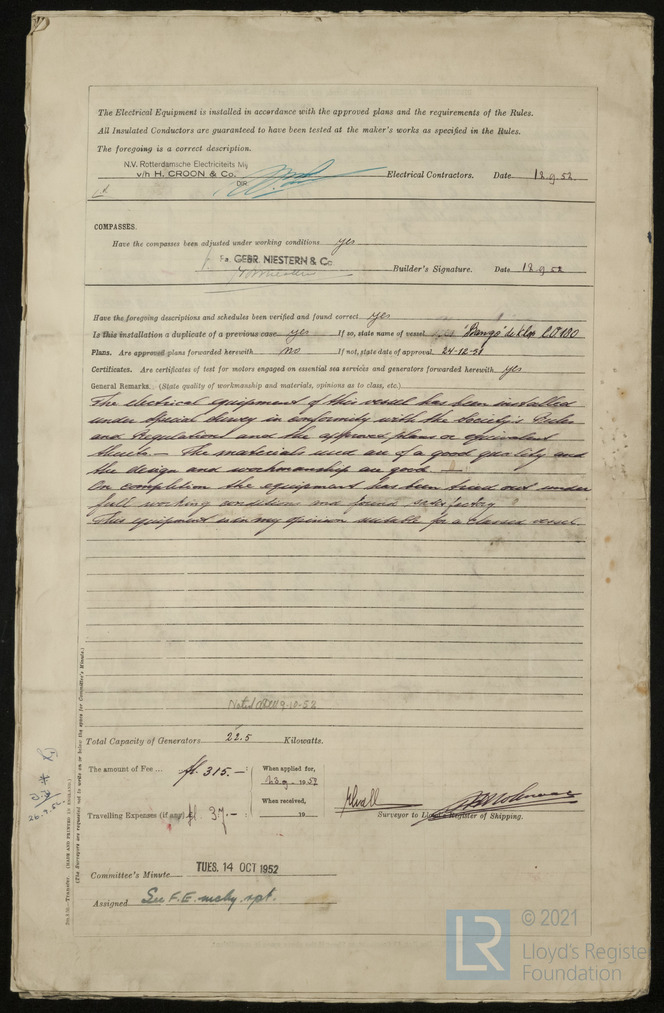 The Electrical Equipment is installed in accordance with the approved plans and the requirements of the Rules.
All Insulated Conductors are guaranteed to have been tested at the maker's works as specified in the Rules.
The foregoing is a correct description.
N.V. Rotterdamsche Electriciteits Mij
v/h H. CROON & Co. Electrical Contractors. Date 18.9.52.
DIR.
COMPASSES.
Have the compasses been adjusted under working conditions yes
Fa. GEBR. NIESTERN & Co
Builder's Signature. Date 18.9.52
Have the foregoing descriptions and schedules been verified and found correct yes
Is this installation a duplicate of a previous case yes If so, state name of vessel
Plans. Are approved plans forwarded herewith no If not, state date of approval 24-12-51
Certificates. Are certificates of test for motors engaged on essential sea services and generators forwarded herewith yes
General Remarks. (State quality of workmanship and materials, opinions as to class, etc.)
The electrical equipment of this vessel has been installed
under special survey in conformity with the Society's Rules
and Regulations and the approved plans or equivalent
thereto – The materials used are of a good quality and
the design and workmanship are good –
On completion the equipment has been tried out under
full working conditions and found satisfactory
This equipment is in my opinion suitable for a classed vessel.
Noted 9-10-52
Total Capacity of Generators 22.5 Kilowatts.
The amount of Fee ... fl. 315.– : When applied for,
19 52
When received,
Travelling Expenses (if any) fl 37.– : 19
Surveyor to Lloyd's Register of Shipping.
Committee's Minute TUES. 14 OCT 1952
Assigned See F.E. mchy. rpt.
(MADE AND PRINTED IN ENGLAND.)
(The Surveyors are requested not to write on or below the space for Committee's Minute.)
LR
© 2021
Lloyd's Register
Foundation